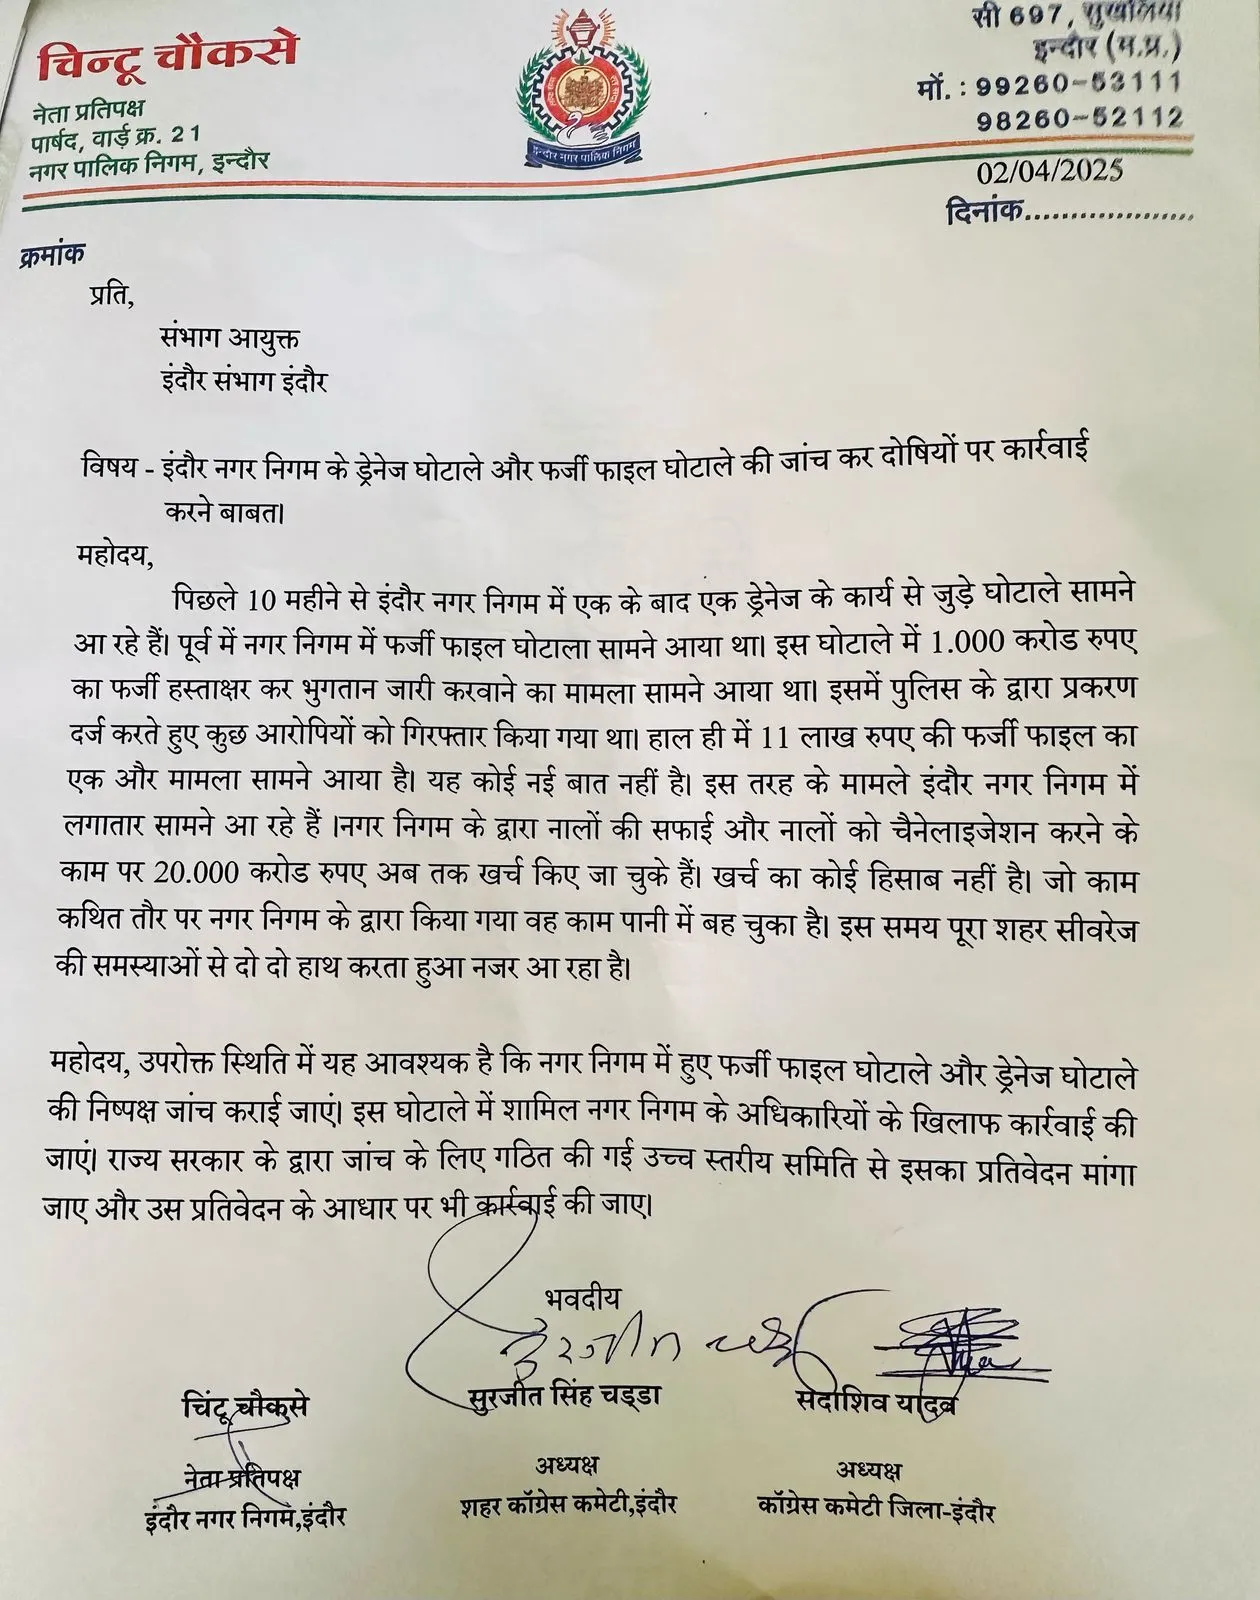 चिन्टू चौकसे
नेता प्रतिपक्ष
पार्षद, वार्ड क्र. 21
नगर पालिक निगम, इन्दौर
इन्दौर नगर पालिक निगम
सी 697, सुखलिया
इन्दौर (म.प्र.)
मों. : 99260-53111
98260-52112
02/04/2025
दिनांक....................
क्रमांक
प्रति,
संभाग आयुक्त
इंदौर संभाग इंदौर
विषय - इंदौर नगर निगम के ड्रेनेज घोटाले और फर्जी फाइल घोटाले की जांच कर दोषियों पर कार्रवाई
करने बाबत।
महोदय,
पिछले 10 महीने से इंदौर नगर निगम में एक के बाद एक ड्रेनेज के कार्य से जुड़े घोटाले सामने
आ रहे हैं। पूर्व में नगर निगम में फर्जी फाइल घोटाला सामने आया था। इस घोटाले में 1.000 करोड रुपए
का फर्जी हस्ताक्षर कर भुगतान जारी करवाने का मामला सामने आया था। इसमें पुलिस के द्वारा प्रकरण
दर्ज करते हुए कुछ आरोपियों को गिरफ्तार किया गया था। हाल ही में 11 लाख रुपए की फर्जी फाइल का
एक और मामला सामने आया है। यह कोई नई बात नहीं है। इस तरह के मामले इंदौर नगर निगम में
लगातार सामने आ रहे हैं ।नगर निगम के द्वारा नालों की सफाई और नालों को चैनेलाइजेशन करने के
काम पर 20.000 करोड रुपए अब तक खर्च किए जा चुके हैं। खर्च का कोई हिसाब नहीं है। जो काम
कथित तौर पर नगर निगम के द्वारा किया गया वह काम पानी में बह चुका है। इस समय पूरा शहर सीवरेज
की समस्याओं से दो दो हाथ करता हुआ नजर आ रहा है।
महोदय, उपरोक्त स्थिति में यह आवश्यक है कि नगर निगम में हुए फर्जी फाइल घोटाले और ड्रेनेज घोटाले
की निष्पक्ष जांच कराई जाएं। इस घोटाले में शामिल नगर निगम के अधिकारियों के खिलाफ कार्रवाई की
जाएं। राज्य सरकार के द्वारा जांच के लिए गठित की गई उच्च स्तरीय समिति से इसका प्रतिवेदन मांगा
जाए और उस प्रतिवेदन के आधार पर भी कार्रवाई की जाए।
भवदीय
चिंटू चौकसे
सुरजीत सिंह चड्डा
सदाशिव यादव
नेता प्रतिपक्ष
अध्यक्ष
अध्यक्ष
इंदौर नगर निगम,इंदौर
शहर कॉग्रेस कमेटी,इंदौर
कॉग्रेस कमेटी जिला-इंदौर